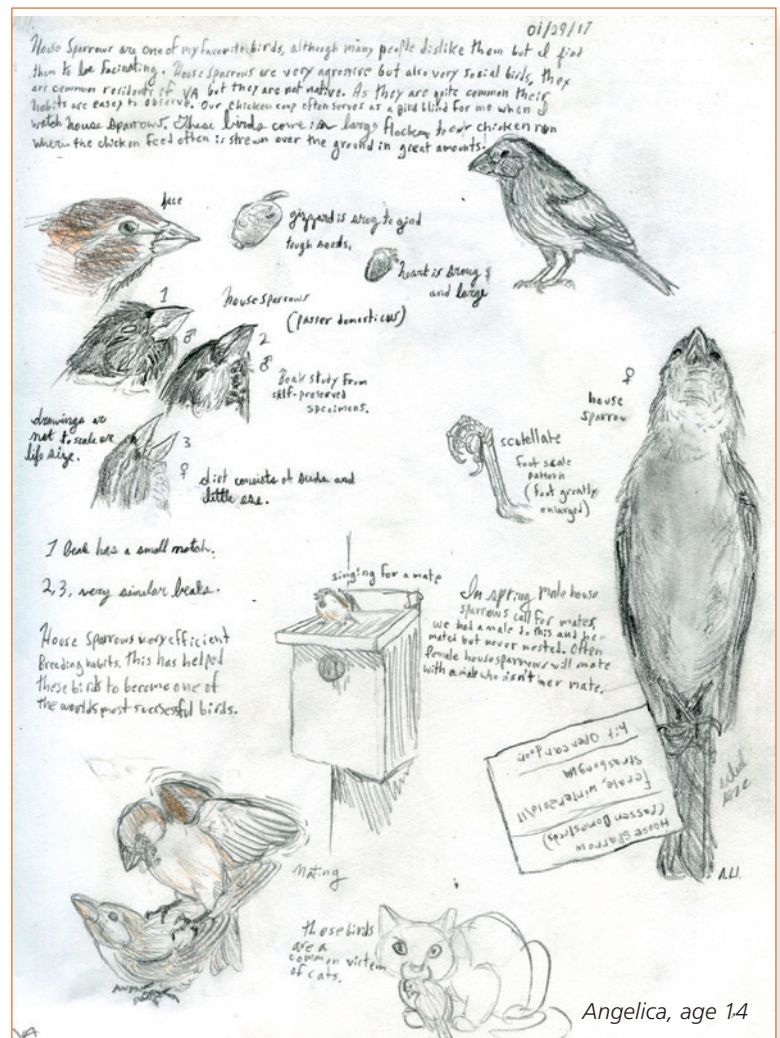 01/29/17
House Sparrows are one of my favorite birds, although many people dislike them but I find
them to be facinating. House sparrows are very agressive but also very social birds, they
are common residents of VA but they are not native. As they are quite common their
habits are easy to observe. Our chicken coop often serves as a bird blind for me when I
watch house sparrows. These birds come in large flocks to our chicken run
where the chicken feed often is strewn over the ground in great amounts.
face
gizzard is strong to grind
tough seeds.
heart is strong &
and large
1
house sparrows
(passer domesticus)
♂
2
♂
Beak study from
self-preserved
specimens.
♀
house
sparrow
drawings are
not to scale or
life size.
3
♀
diet consists of seeds and
little else.
scutellate
foot scale
pattern
(foot greatly
enlarged)
1 beak has a small notch.
2,3, very similar beaks.
singing for a mate
House Sparrows very efficient
Breeding habits. This has helped
these birds to become one of
the worlds most successful birds.
In spring male house
sparrows call for mates,
we had a male do this and he
mated but never nested. Often
female house sparrows will mate
with a male who isn't her mate.
House Sparrow
(Passer Domesticus)
Female, winter 2016/17
Strasburg VA
hit open car door
actual
size
A.H.
mating
these birds
are a
common victem
of cats.
Angelica, age 14
VA